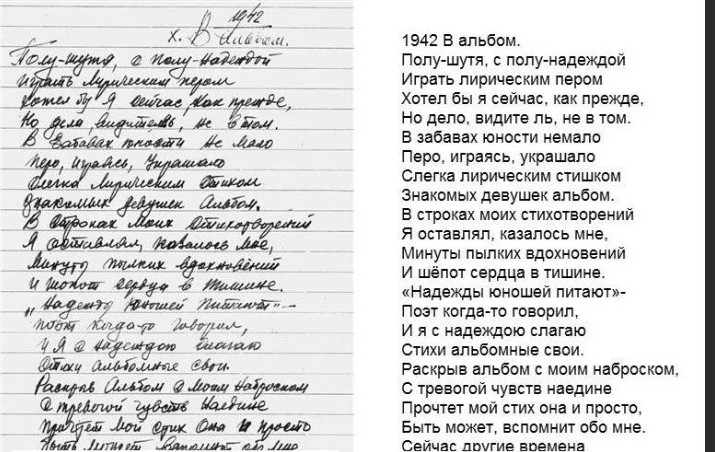 1942
х. В Альбом.
Полу-шутя, с полу-надеждой
Играть лирическим пером
Хотел бы я сейчас, как прежде,
Но дела, видитель, не в том.
В забавах юности не мало
Перо, играясь, украшало
Слегка лирическим стихом
Знакомых девушек Альбом.
В строках моих стихотворений
Я оставлял, казалось мне,
Минуты пылких вдохновений
И шопот сердца в тишине.
„Надежды юношей питают" –
поэт когда-то говорил,
и Я с надеждою слагаю
Стихи альбомные свои.
Раскрыв Альбом с моим наброском
с тревогой чувств наедине
Прочтет мой стих Она и просто
Быть может вспомнит обо мне
1942 В альбом.
Полу-шутя, с полу-надеждой
Играть лирическим пером
Хотел бы я сейчас, как прежде,
Но дело, видите ль, не в том.
В забавах юности немало
Перо, играясь, украшало
Слегка лирическим стишком
Знакомых девушек альбом.
В строках моих стихотворений
Я оставлял, казалось мне,
Минуты пылких вдохновений
И шёпот сердца в тишине.
«Надежды юношей питают»-
Поэт когда-то говорил,
И я с надеждою слагаю
Стихи альбомные свои.
Раскрыв альбом с моим наброском,
С тревогой чувств наедине
Прочтет мой стих она и просто,
Быть может, вспомнит обо мне.
Сейчас другие времена